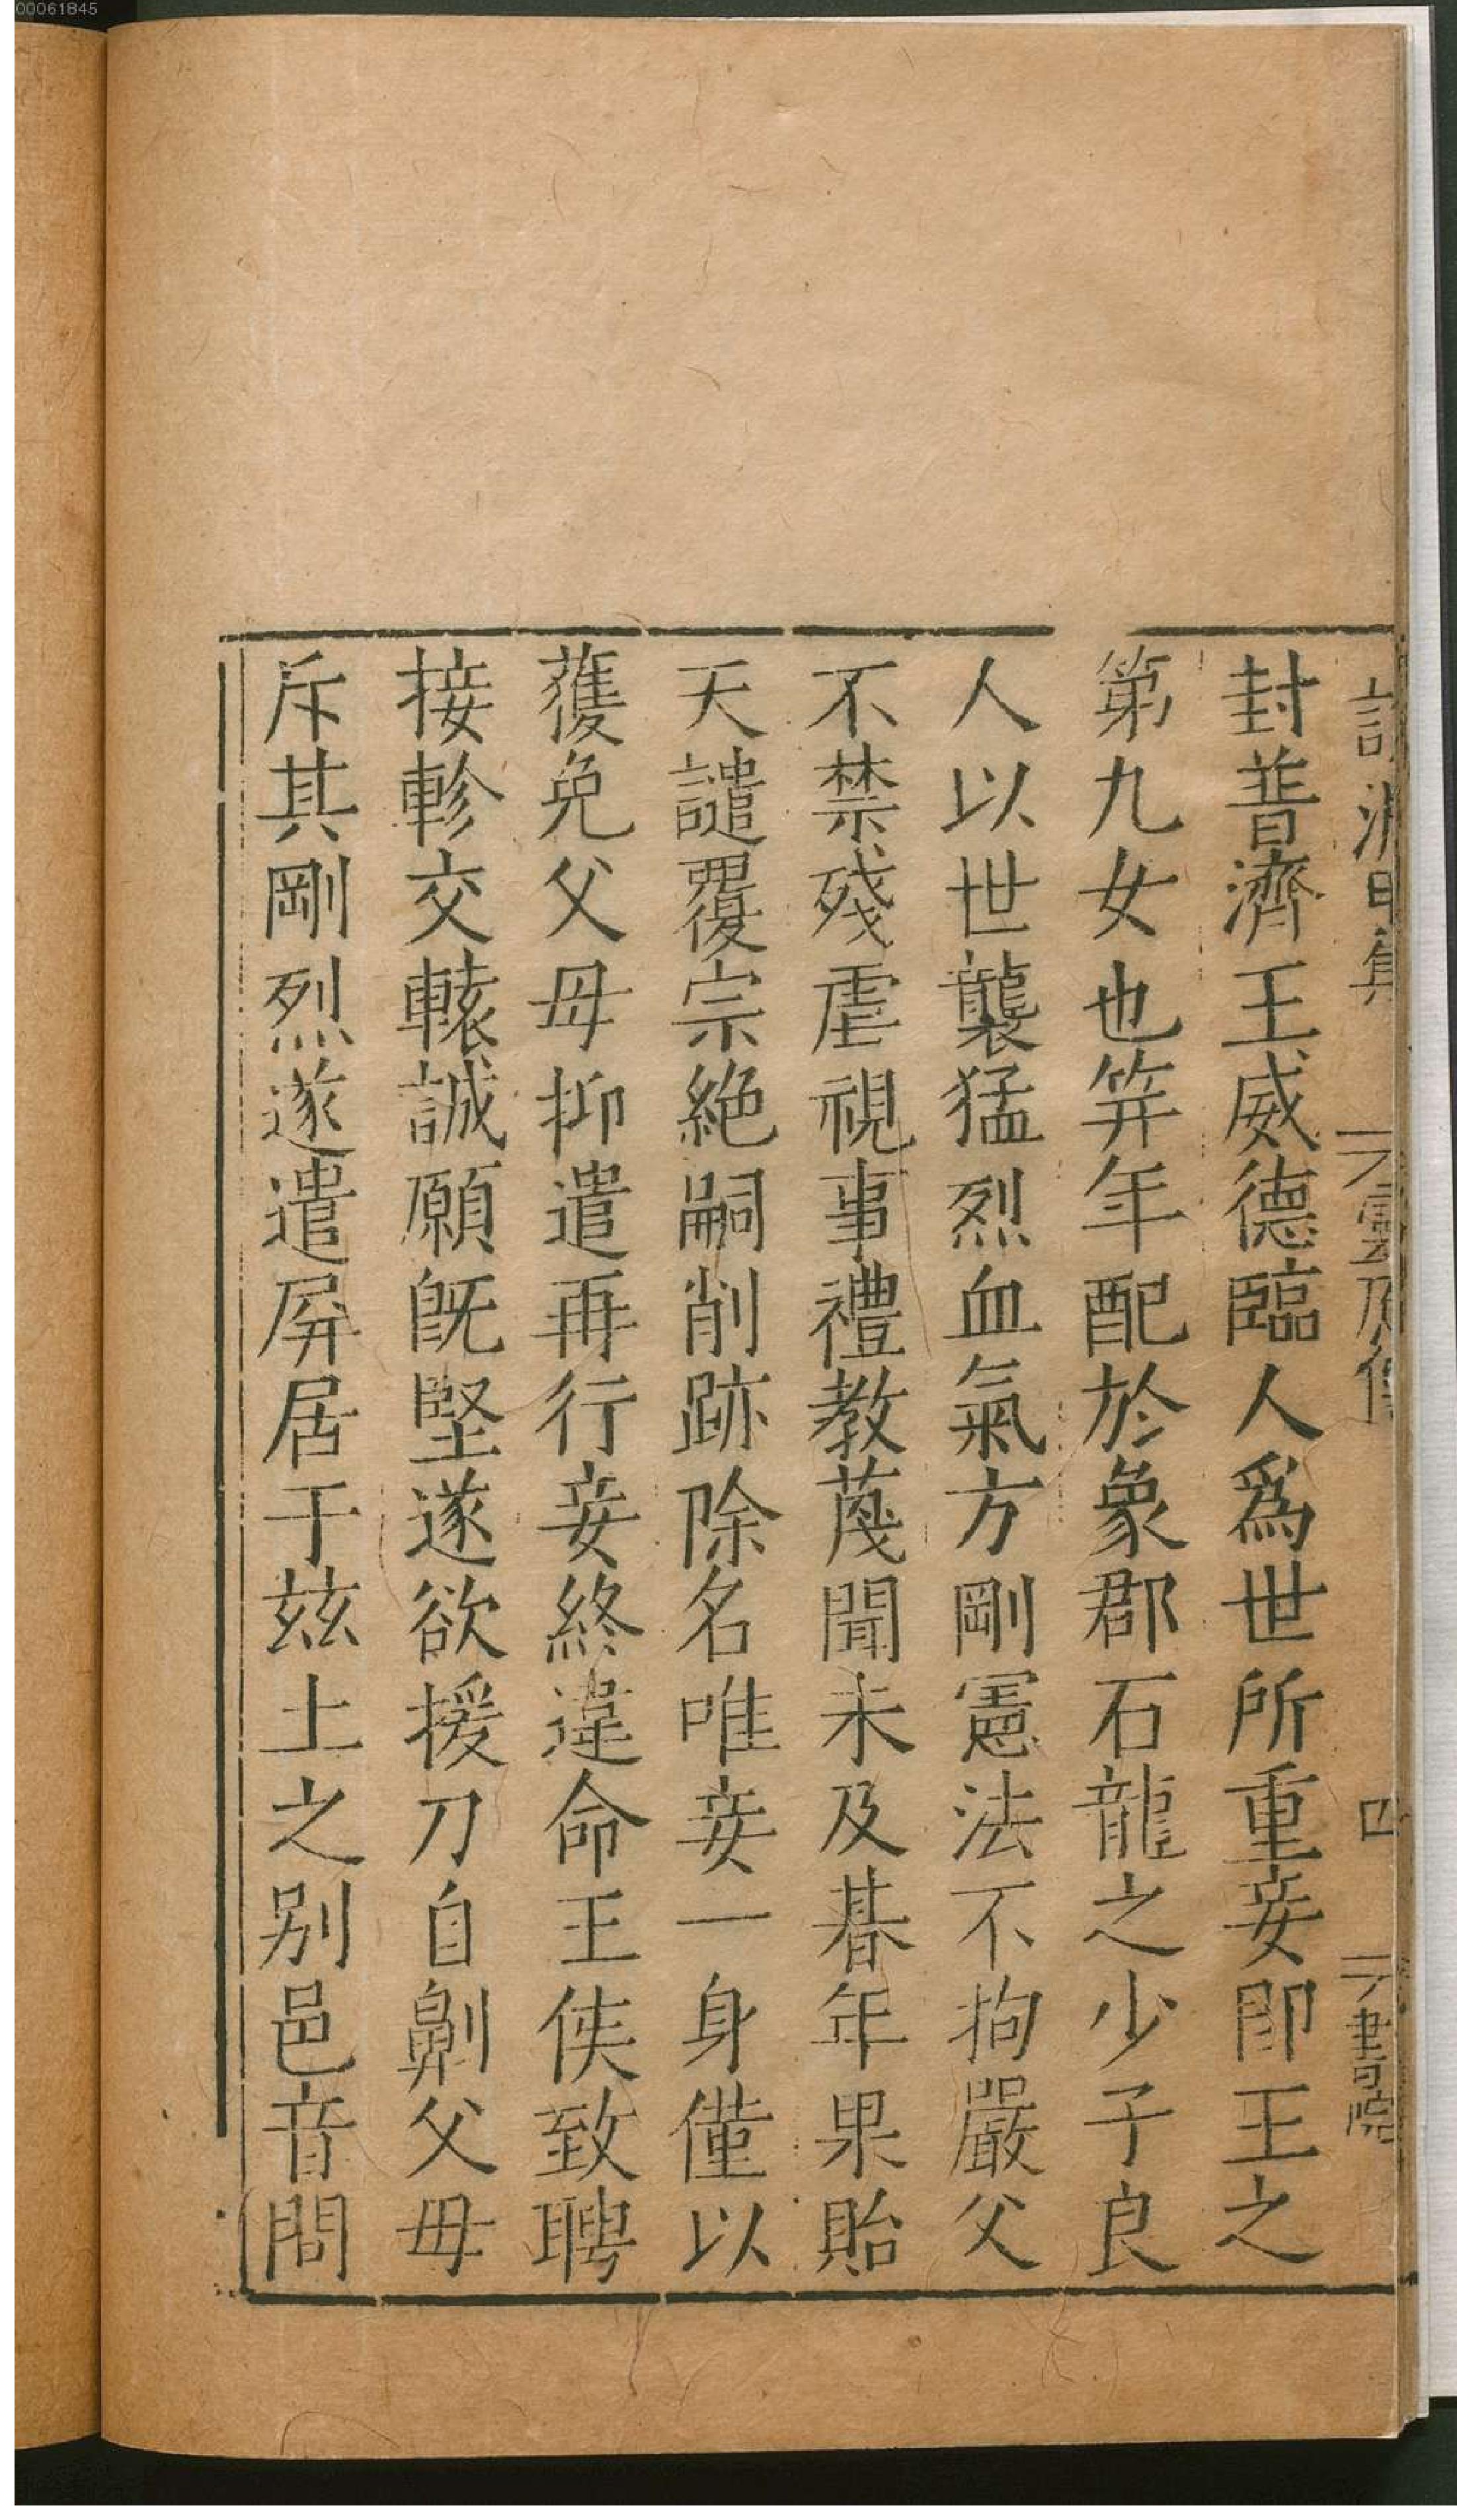 00061845
封普濟王威德臨人爲世所重妾即王之
第九女也筓年配於象郡石龍之少子良
人以世襲猛烈血氣方剛憲法不拘嚴父
不禁殘虐視事禮教蔑聞未及朞年果貽
天譴覆宗絶嗣削跡除名唯妾一身僅以
獲免父母抑遣再行妾終違命王侯致聘
接軫交轅誠願旣堅遂欲援刀自劓父母
斥其剛烈遂遣屏居于兹土之别邑音問
四
書院